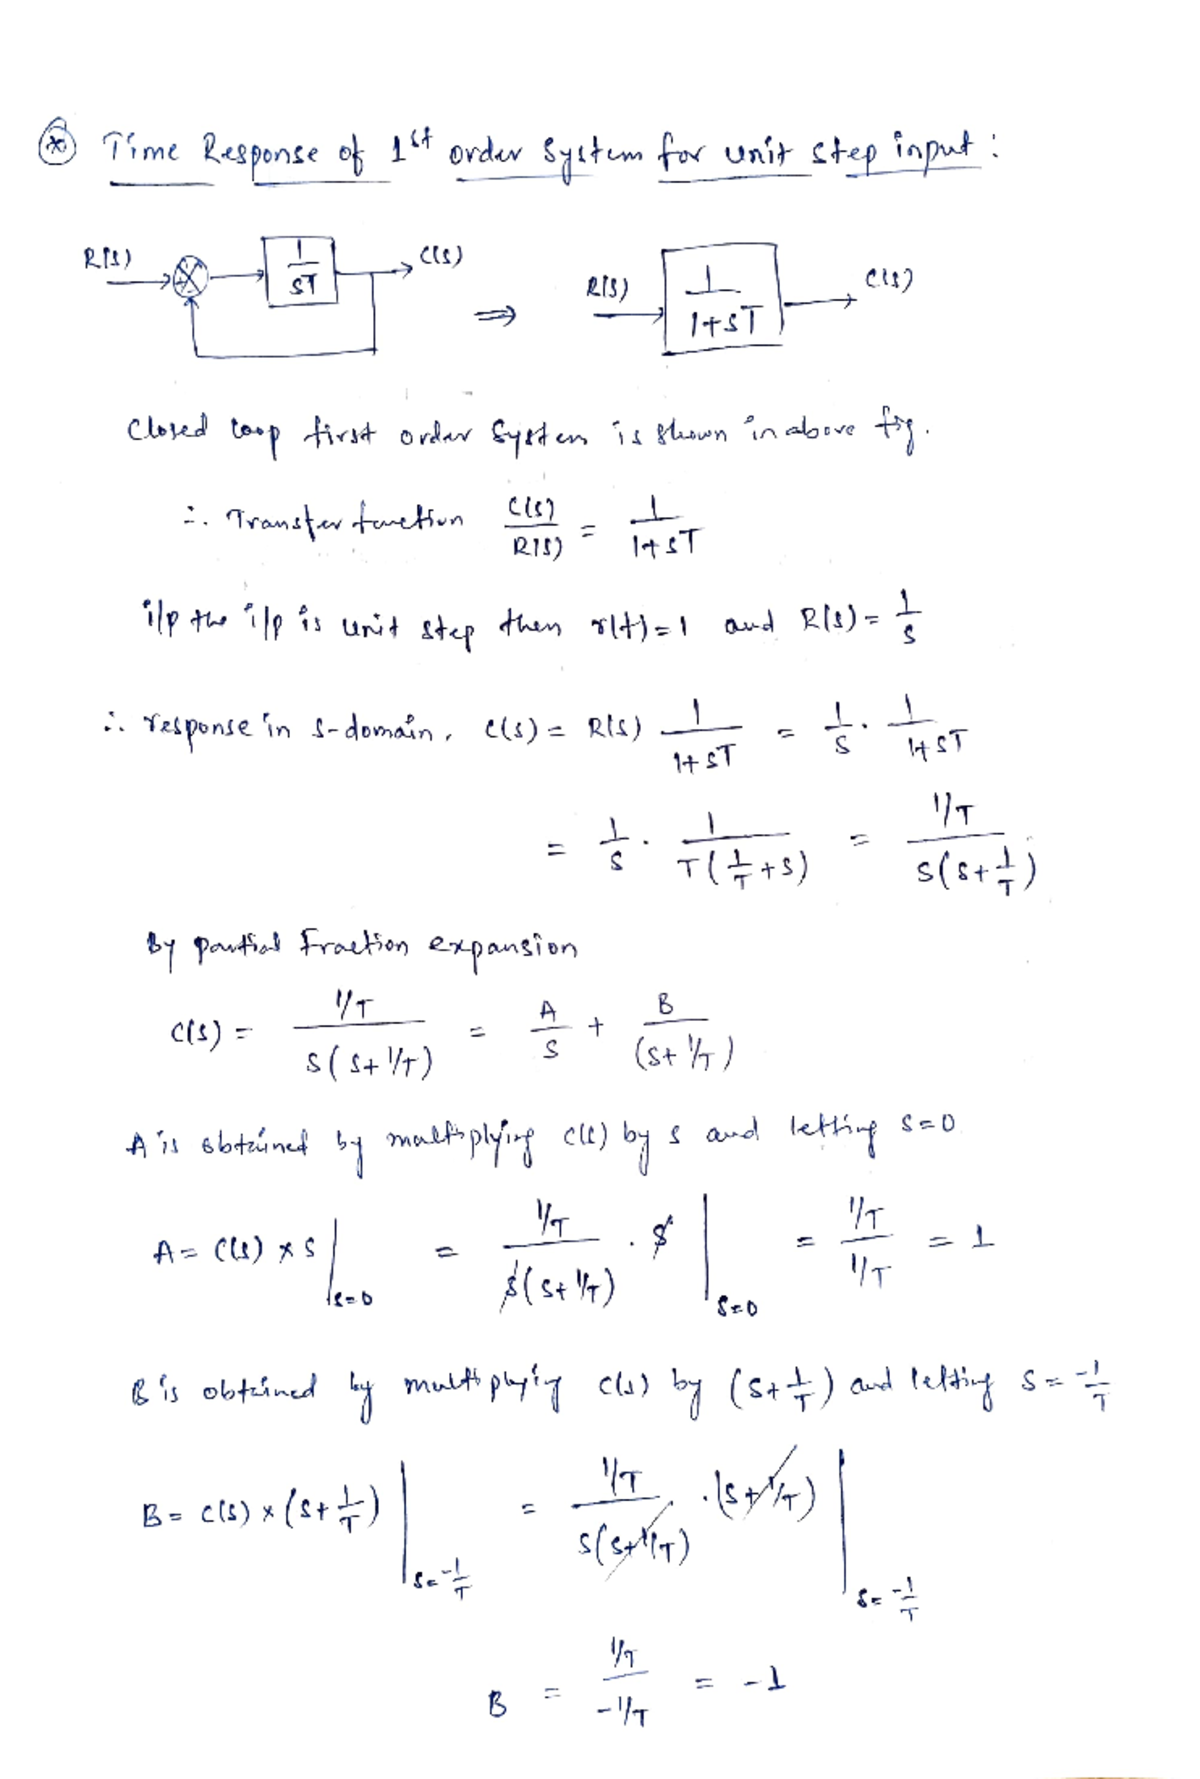 ⊛ Time Response of 1st order System for unit step input :
R(s) 1/sT C(s) ⇒ R(s) 1/(1+sT) C(s)
Closed loop first order System is shown in above fig.
∴ Transfer function C(s)/R(s) = 1/(1+sT)
i/p the i/p is unit step then r(t)=1 and R(s) = 1/s
∴ response in s-domain, C(s) = R(s) 1/(1+sT) = 1/s · 1/(1+sT)
= 1/s · 1/(T(1/T + s)) = (1/T)/(s(s+1/T))
By partial Fraction expansion
C(s) = (1/T)/(s(s+1/T)) = A/s + B/(s+1/T)
A is obtained by multiplying C(s) by s and letting s=0
A = C(s) × s |s=0 = (1/T)/(s(s+1/T)) · s |s=0 = (1/T)/(1/T) = 1
B is obtained by multiplying C(s) by (s+1/T) and letting s = -1/T
B = C(s) × (s+1/T) |s=-1/T = (1/T)/(s(s+1/T)) · (s+1/T) |s=-1/T
B = (1/T)/(-1/T) = -1